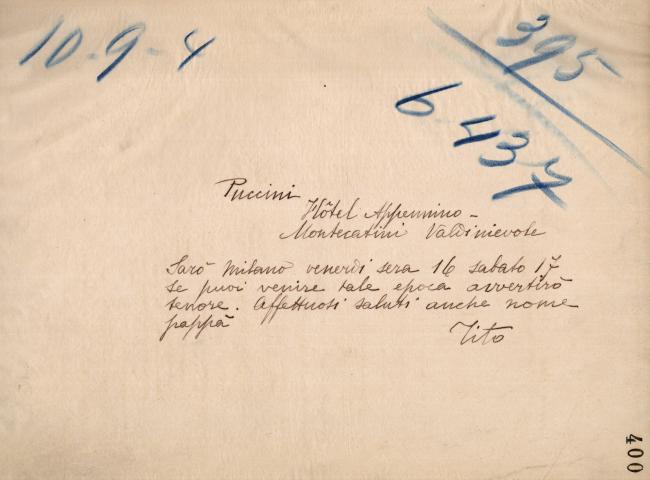 10-9-4
395
6.437
Puccini
Hôtel Appennino -
Montecatini Valdinievole
Sarò Milano venerdì sera 16 sabato 17
se puoi venire tale epoca avvertirò
tenore. Affettuosi saluti anche nome
pappà
Tito
400